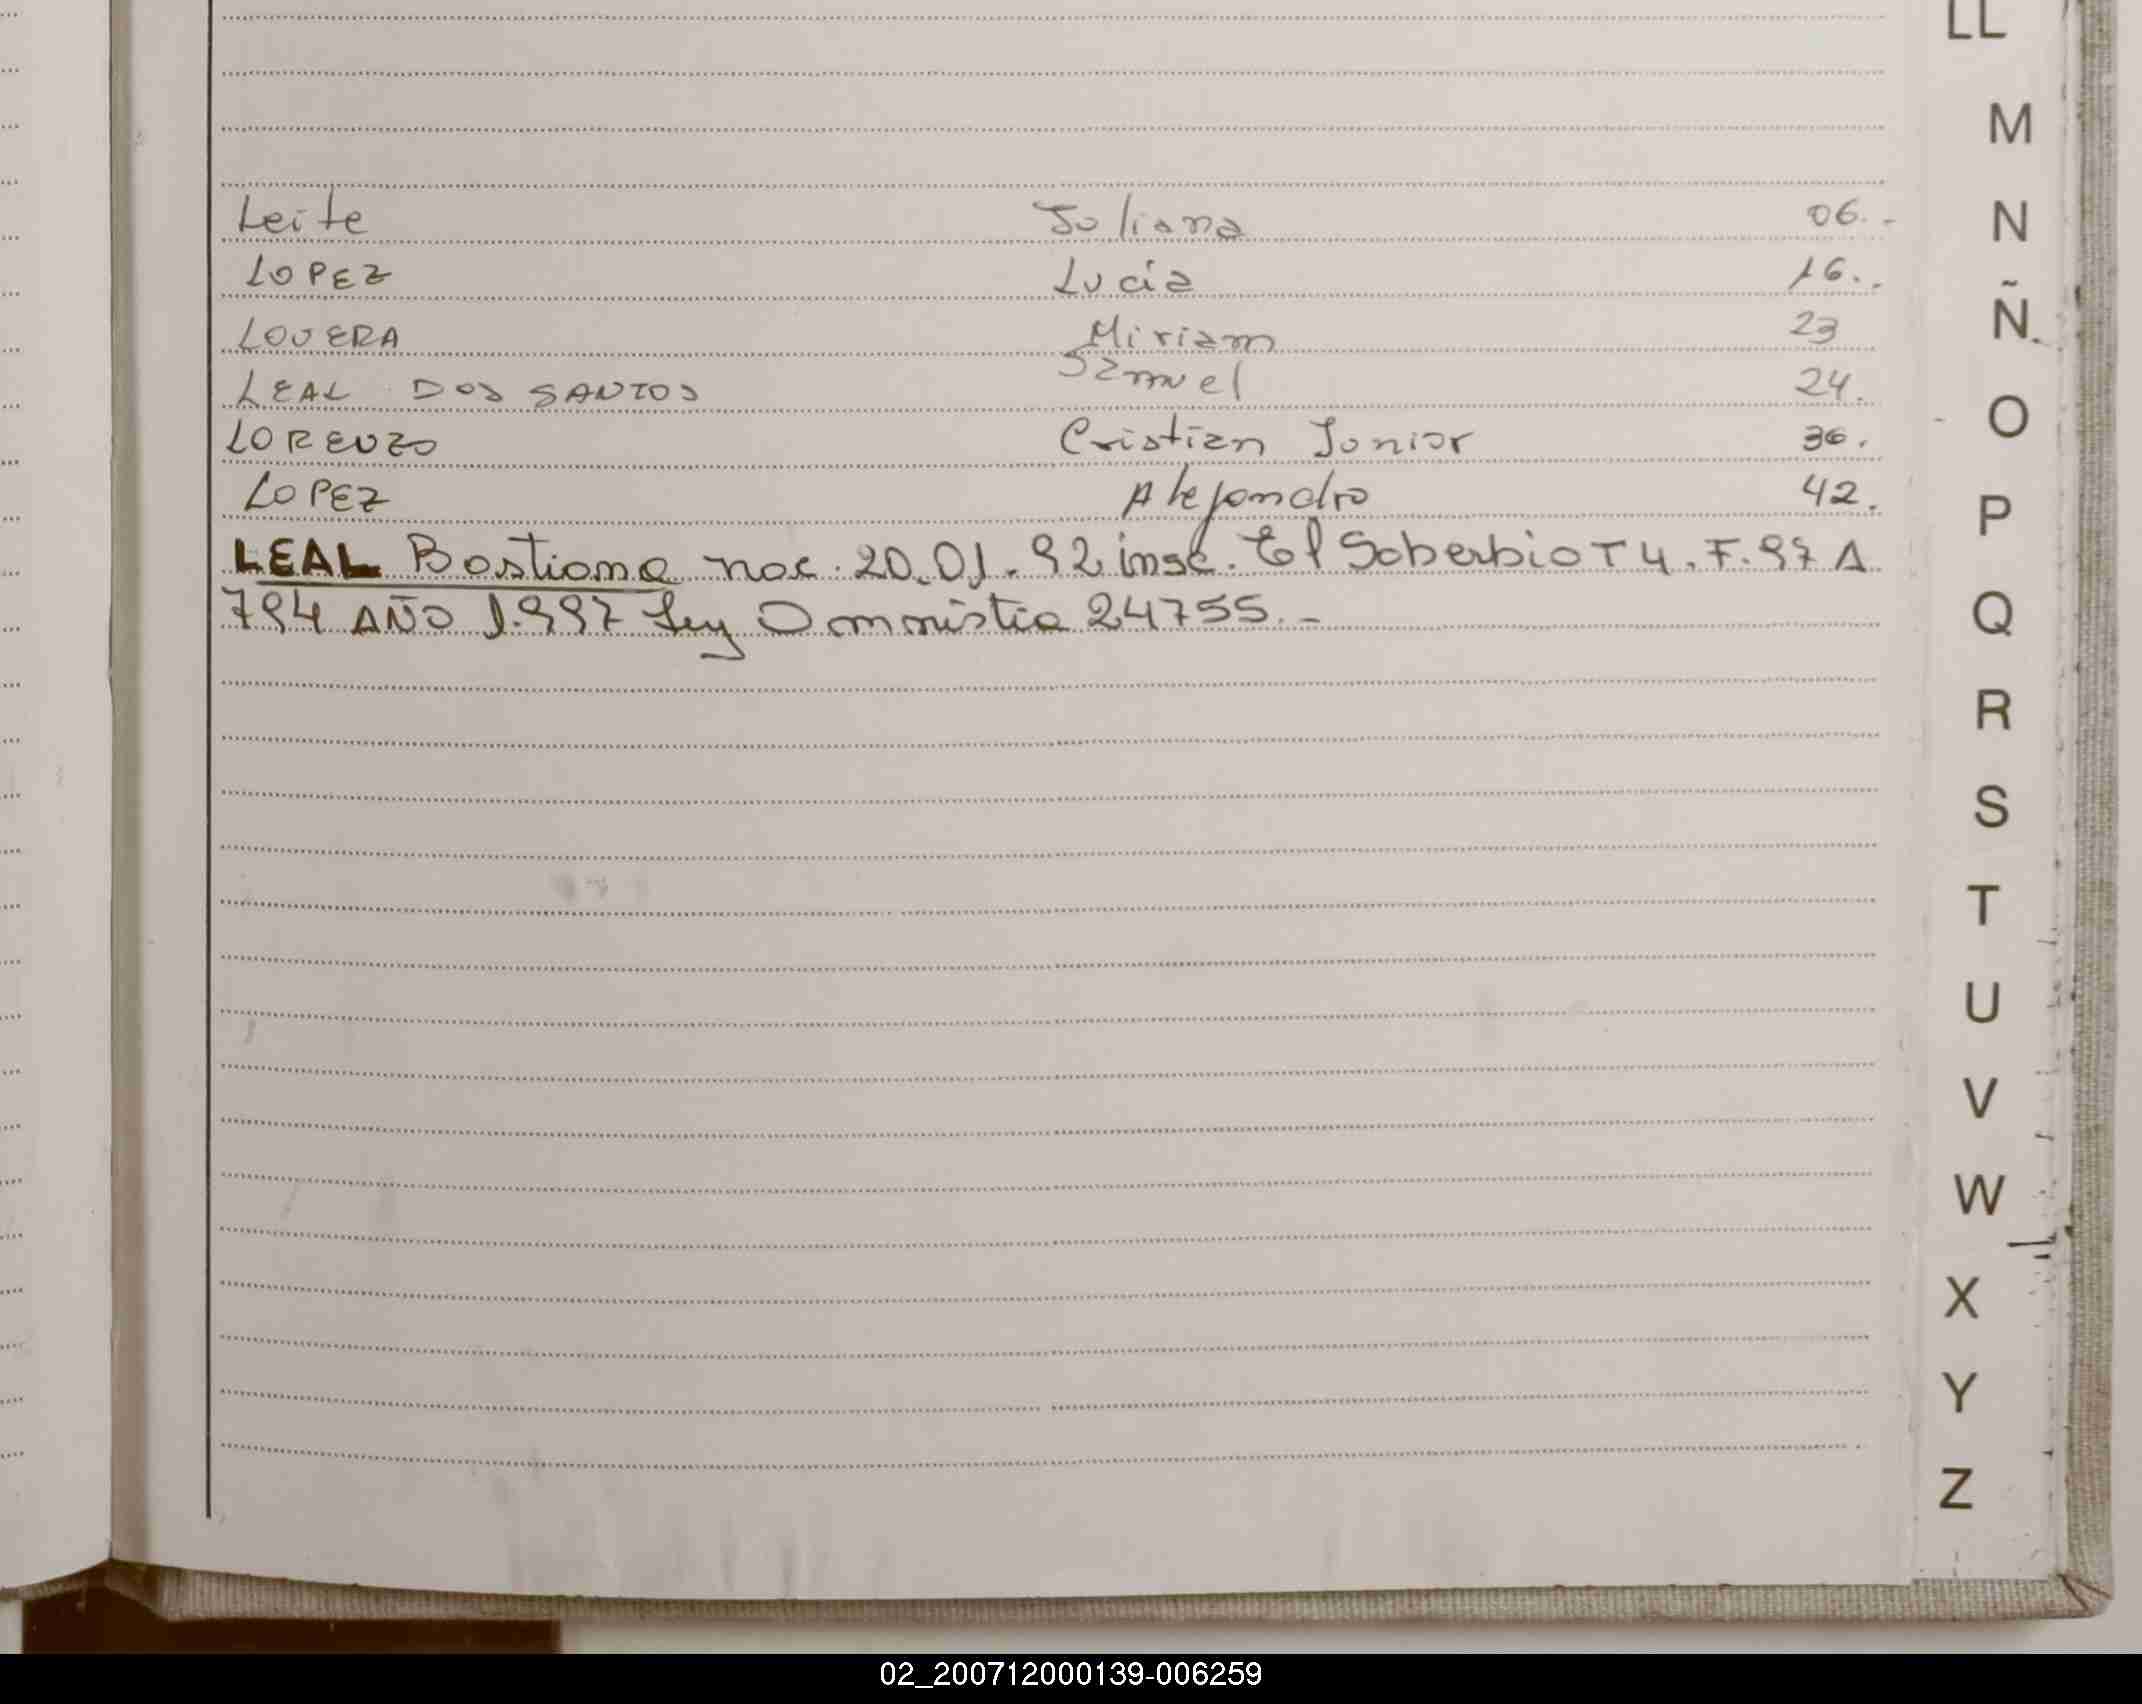 LL
M
N
Ñ
O
P
Q
R
S
T
U
V
W
X
Y
Z
Leite Juliana 06.-
LOPEZ Lucia 16..
LOVERA Miriam 23
LEAL DOS SANTOS Samuel 24.
LORENZO Cristian Junior 36.
LOPEZ Alejandro 42.
LEAL Bastiana nac. 20.01.92 insc. El Soberbio T 4. F. 97 A
794 AÑO 1.997 Ley Ammistia 24755.-
02_200712000139-006259